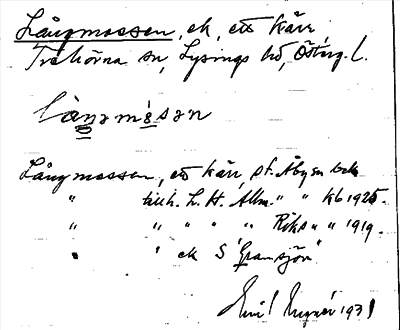 Långmossen, ek, ett kärr,
Trehörna sn, Lysings hd, Österg. l.
làŋmósən
Långmossen, ett kärr, st. Åbyen bek
" tillh. L. H. Allm. " " kb 1925.
" " " " " Riks " " 1919.
" " ek S "Gransjön"
Emil 1931